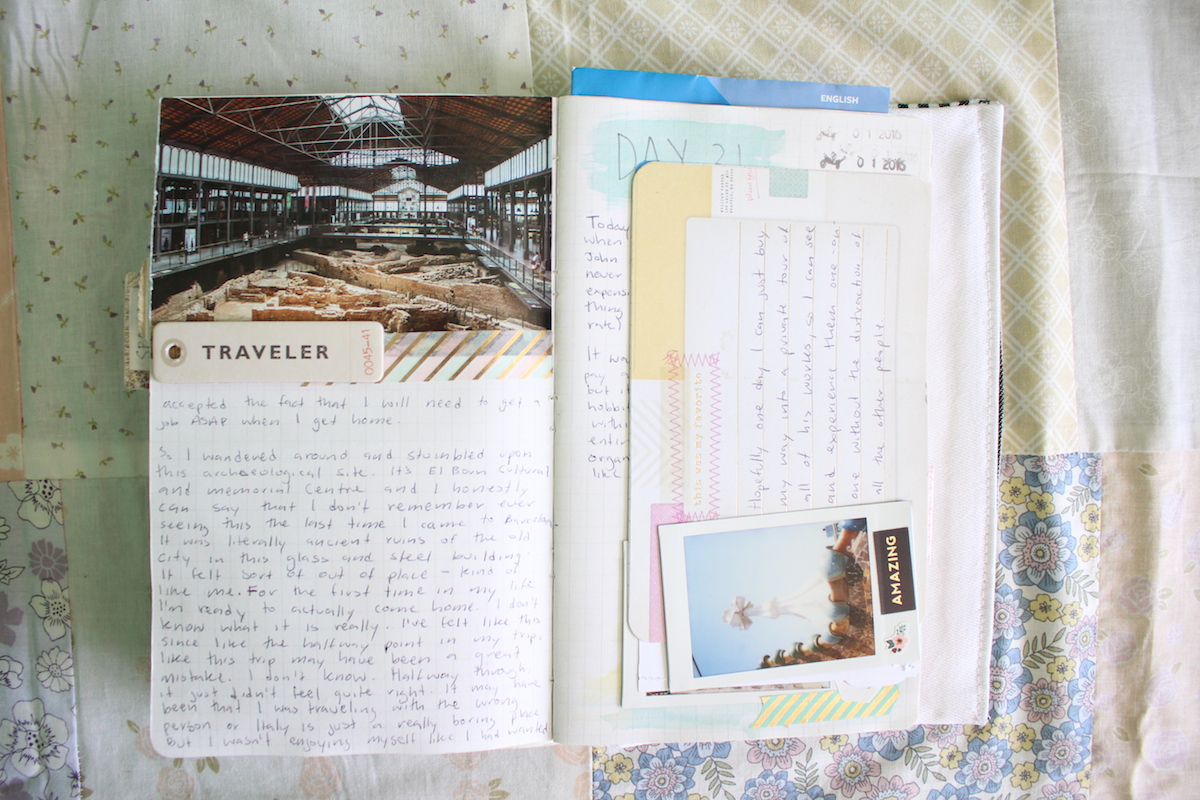 TRAVELER
0045-41
accepted the fact that I will need to get a
job ASAP when I get home.
So I wandered around and stumbled upon
this archaeological site. Its El Born Cultural
and memorial Centre and I honestly
can say that I don't remember ever
seeing this the last time I came to Barcelona.
It was literally ancient ruins of the old
city in this glass and steel building.
It felt sort of out of place - kind of
like me. For the first time in my life
I'm ready to actually come home. I don't
know what it is really. I've felt like this
since like the halfway point in my trip.
like this trip may have been a great
mistake. I don't know. Halfway through
it just didn't feel quite right. It may have
been that I was traveling with the wrong
person or Italy is just a really boring place
But I wasn't enjoying myself like I had wanted
ENGLISH
DAY 21
0 1 2016
0 1 2016
Today
when
John
never
expens
thing
rate)
It wa
pay
but i
hobbi
withi
entir
organ
like
this was my favorite
Hopefully one day I can just buy
my way into a private tour of
all of his works, so I can see
and experience them one-on
one without the distraction of
all the other people
AMAZING